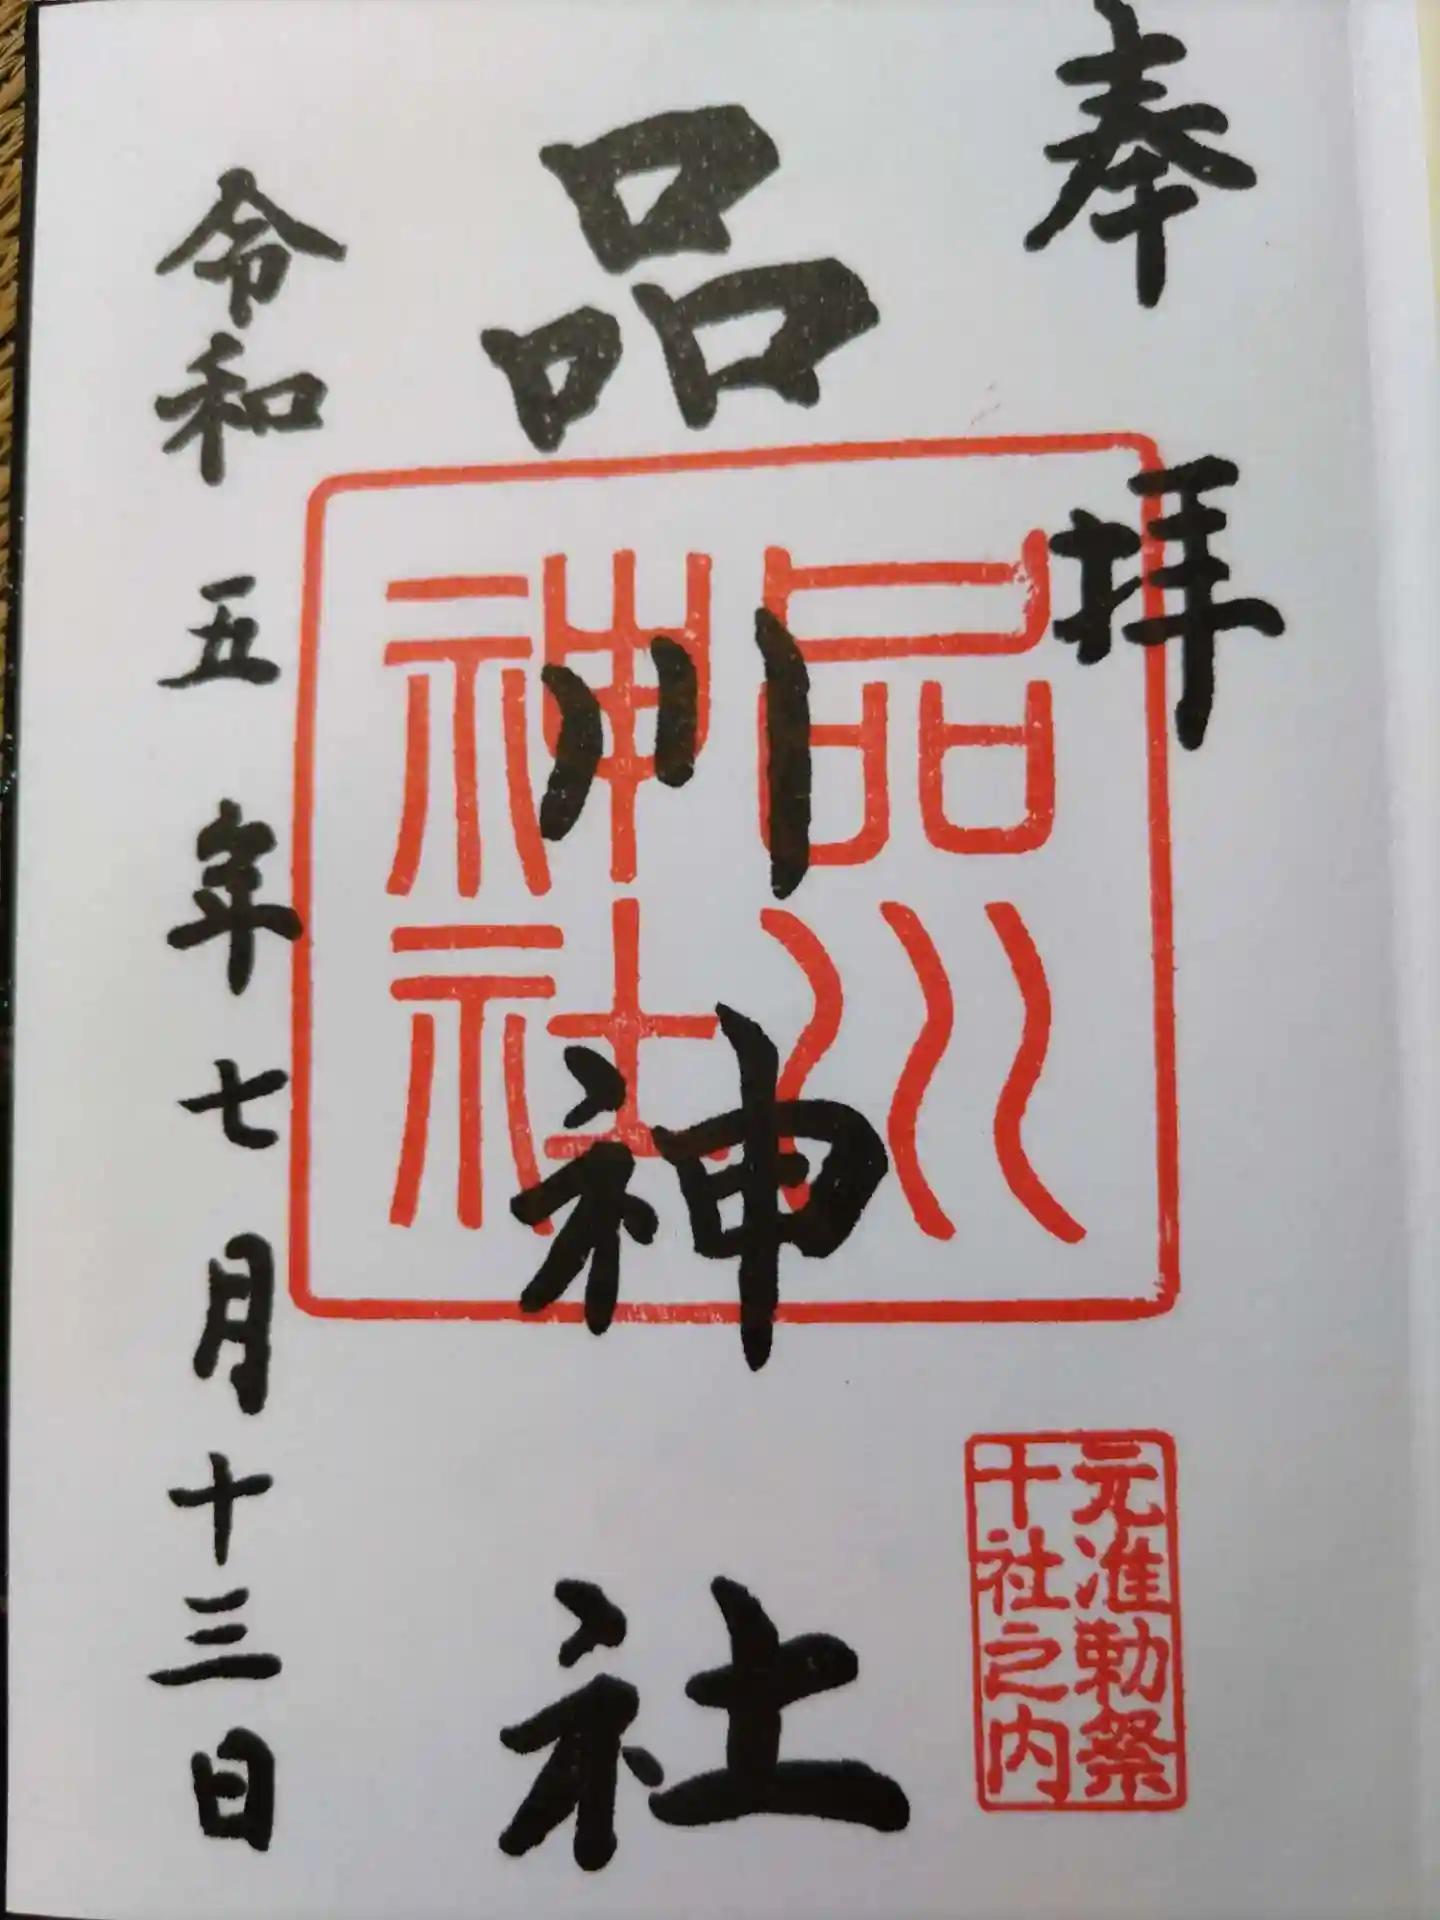 奉拝
元准勅祭
十社之内
品川神社
品川
神社
令和五年七月十三日